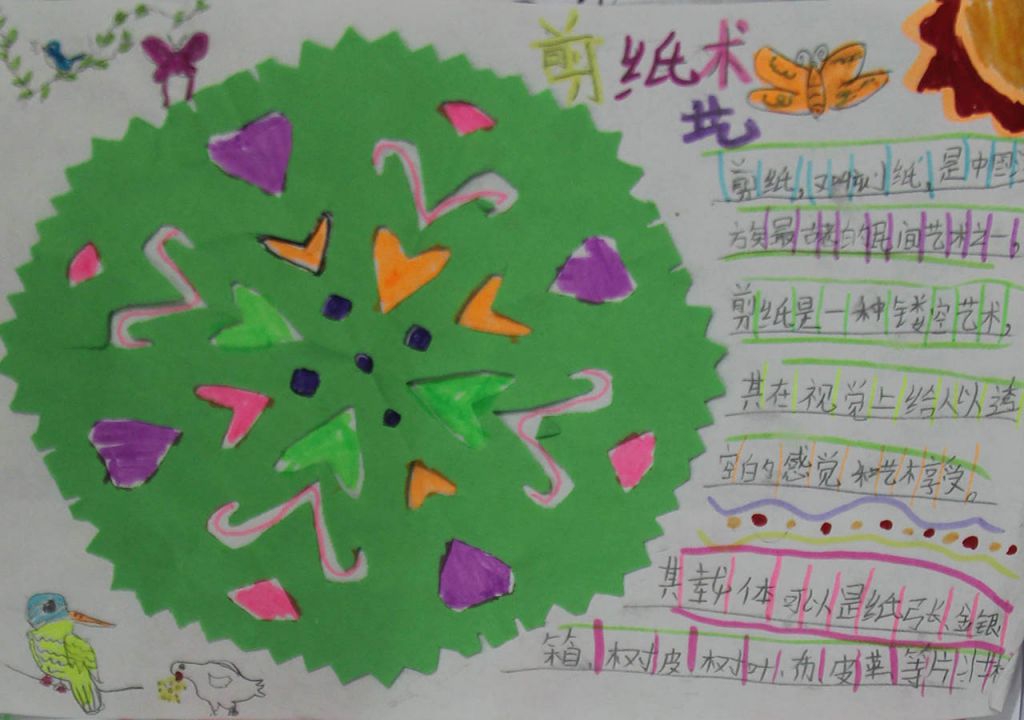 剪纸艺术
剪纸,又叫刻纸,是中国
族最古老的民间艺术之一,
剪纸是一种镂空艺术,
其在视觉上给人以透
空白的感觉和艺术享受。
其载体可以是纸张、金银
箔、树皮、树叶、布、皮、革等片状材